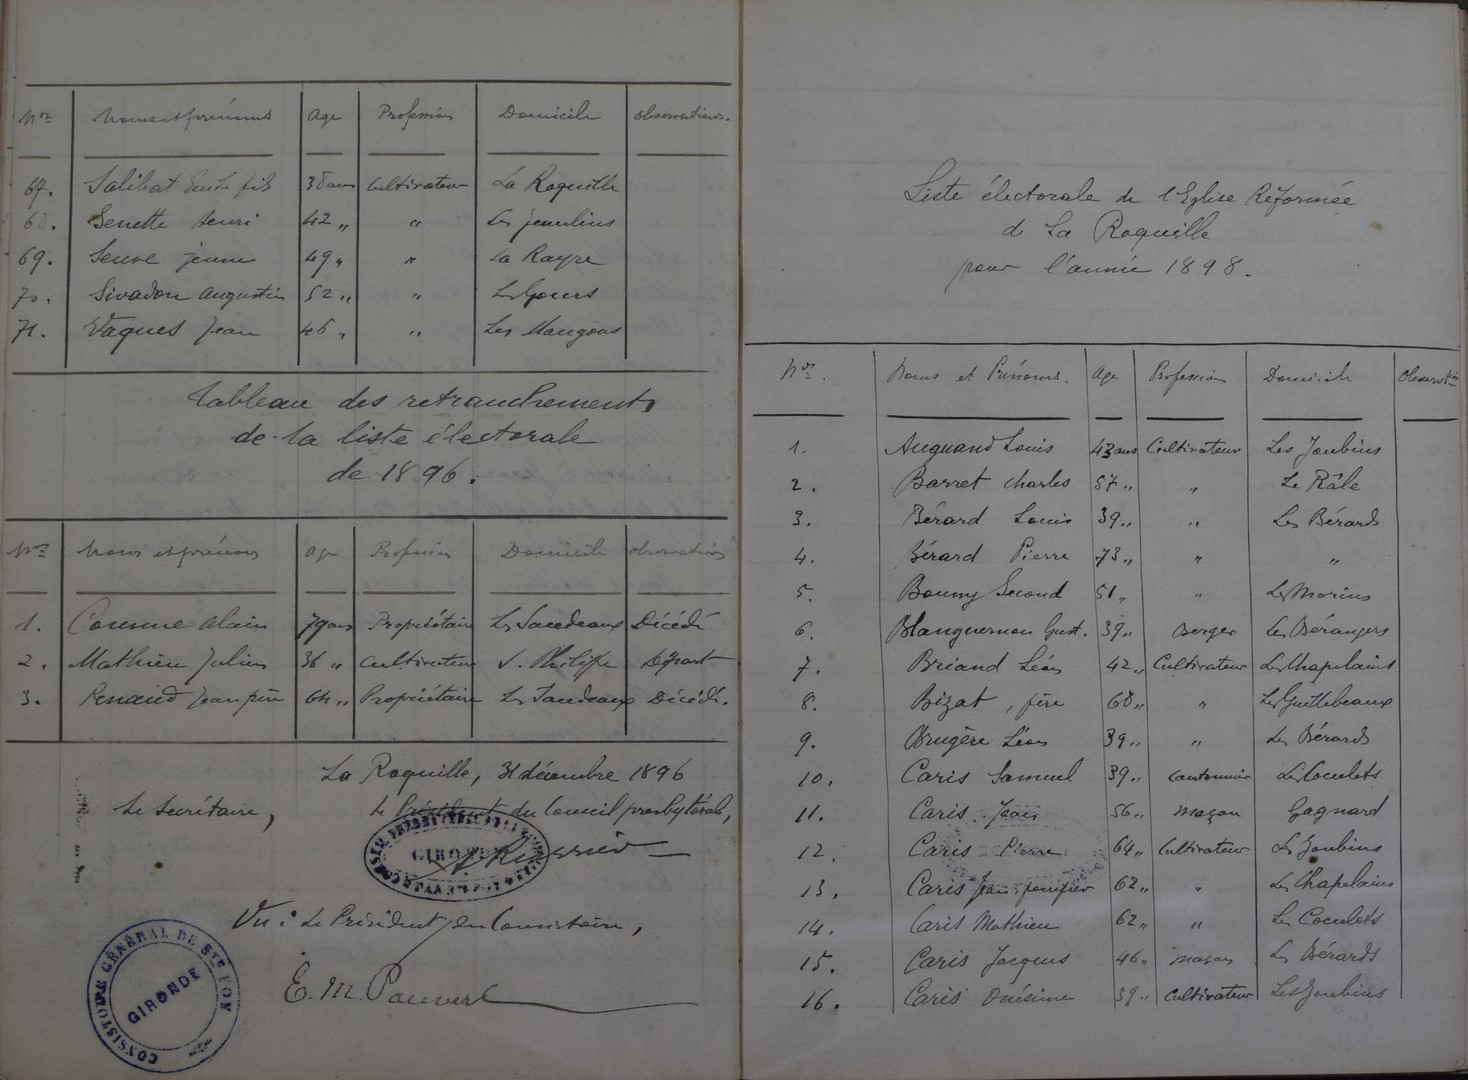 Nos Noms et prénoms Age Profession Domicile Observations.
67. Salibat Emile fils 38 ans Cultivateur La Roquille
68. Senette Henri 42 „ „ Les Jeaulins
69. Seuve jeune 49 „ „ La Rayre
70. Sivadon Augustin 52 „ „ Les Gours
71. Vaques Jean 46 „ „ Les Mangons
Tableau des retranchements
de la liste électorale
de 1896.
Nos Noms et prénoms Age Profession Domicile Observations
1. Alain 79 ans Propriétaire Les Décédé
2. Mathieu Julien 36 „ Cultivateur S. Philippe Départ
3. Renaud Jean père 64 „ Propriétaire Les Décédé.
La Roquille, 31 décembre 1896
Le Secrétaire, Le Président du Conseil presbytéral,
GIRONDE
Vu: Le Président du Consistoire,
E. M. Pauvert
CONSISTOIRE GÉNÉRAL DE STE FOY
GIRONDE
Liste électorale de l'Eglise Réformée
de La Roquille
pour l'année 1898.
Nos. Noms et Prénoms. Age Profession Domicile Observt
1. Auguand Louis 43 ans Cultivateur Les Joubins
2. Barret Charles 57 „ „ Le Râle
3. Bérard Louis 39 „ „ Les Bérards
4. Bérard Pierre 73 „ „ „
5. Boumy Second 51 „ „ Les Morins
6. Blanguernon Gust. 39 „ Berger Les Bérangers
7. Briand Léon 42 „ Cultivateur Les Chapelains
8. Bizat, père 68 „ „ Les Guillebeaux
9. Brugère Léon 39 „ „ Les Bérards
10. Caris Samuel 39 „ Cantonnier Les Coculets
11. Caris Jean 56 „ Maçon Gagnard
12. Caris Pierre 64 „ Cultivateur Les Joubins
13. Caris Jean 62 „ „ Les Chapelains
14. Caris Mathieu 62 „ „ Les Coculets
15. Caris Jacques 46 „ Maçon Les Bérards
16. Caris Onésime 39 „ Cultivateur Les Joubins